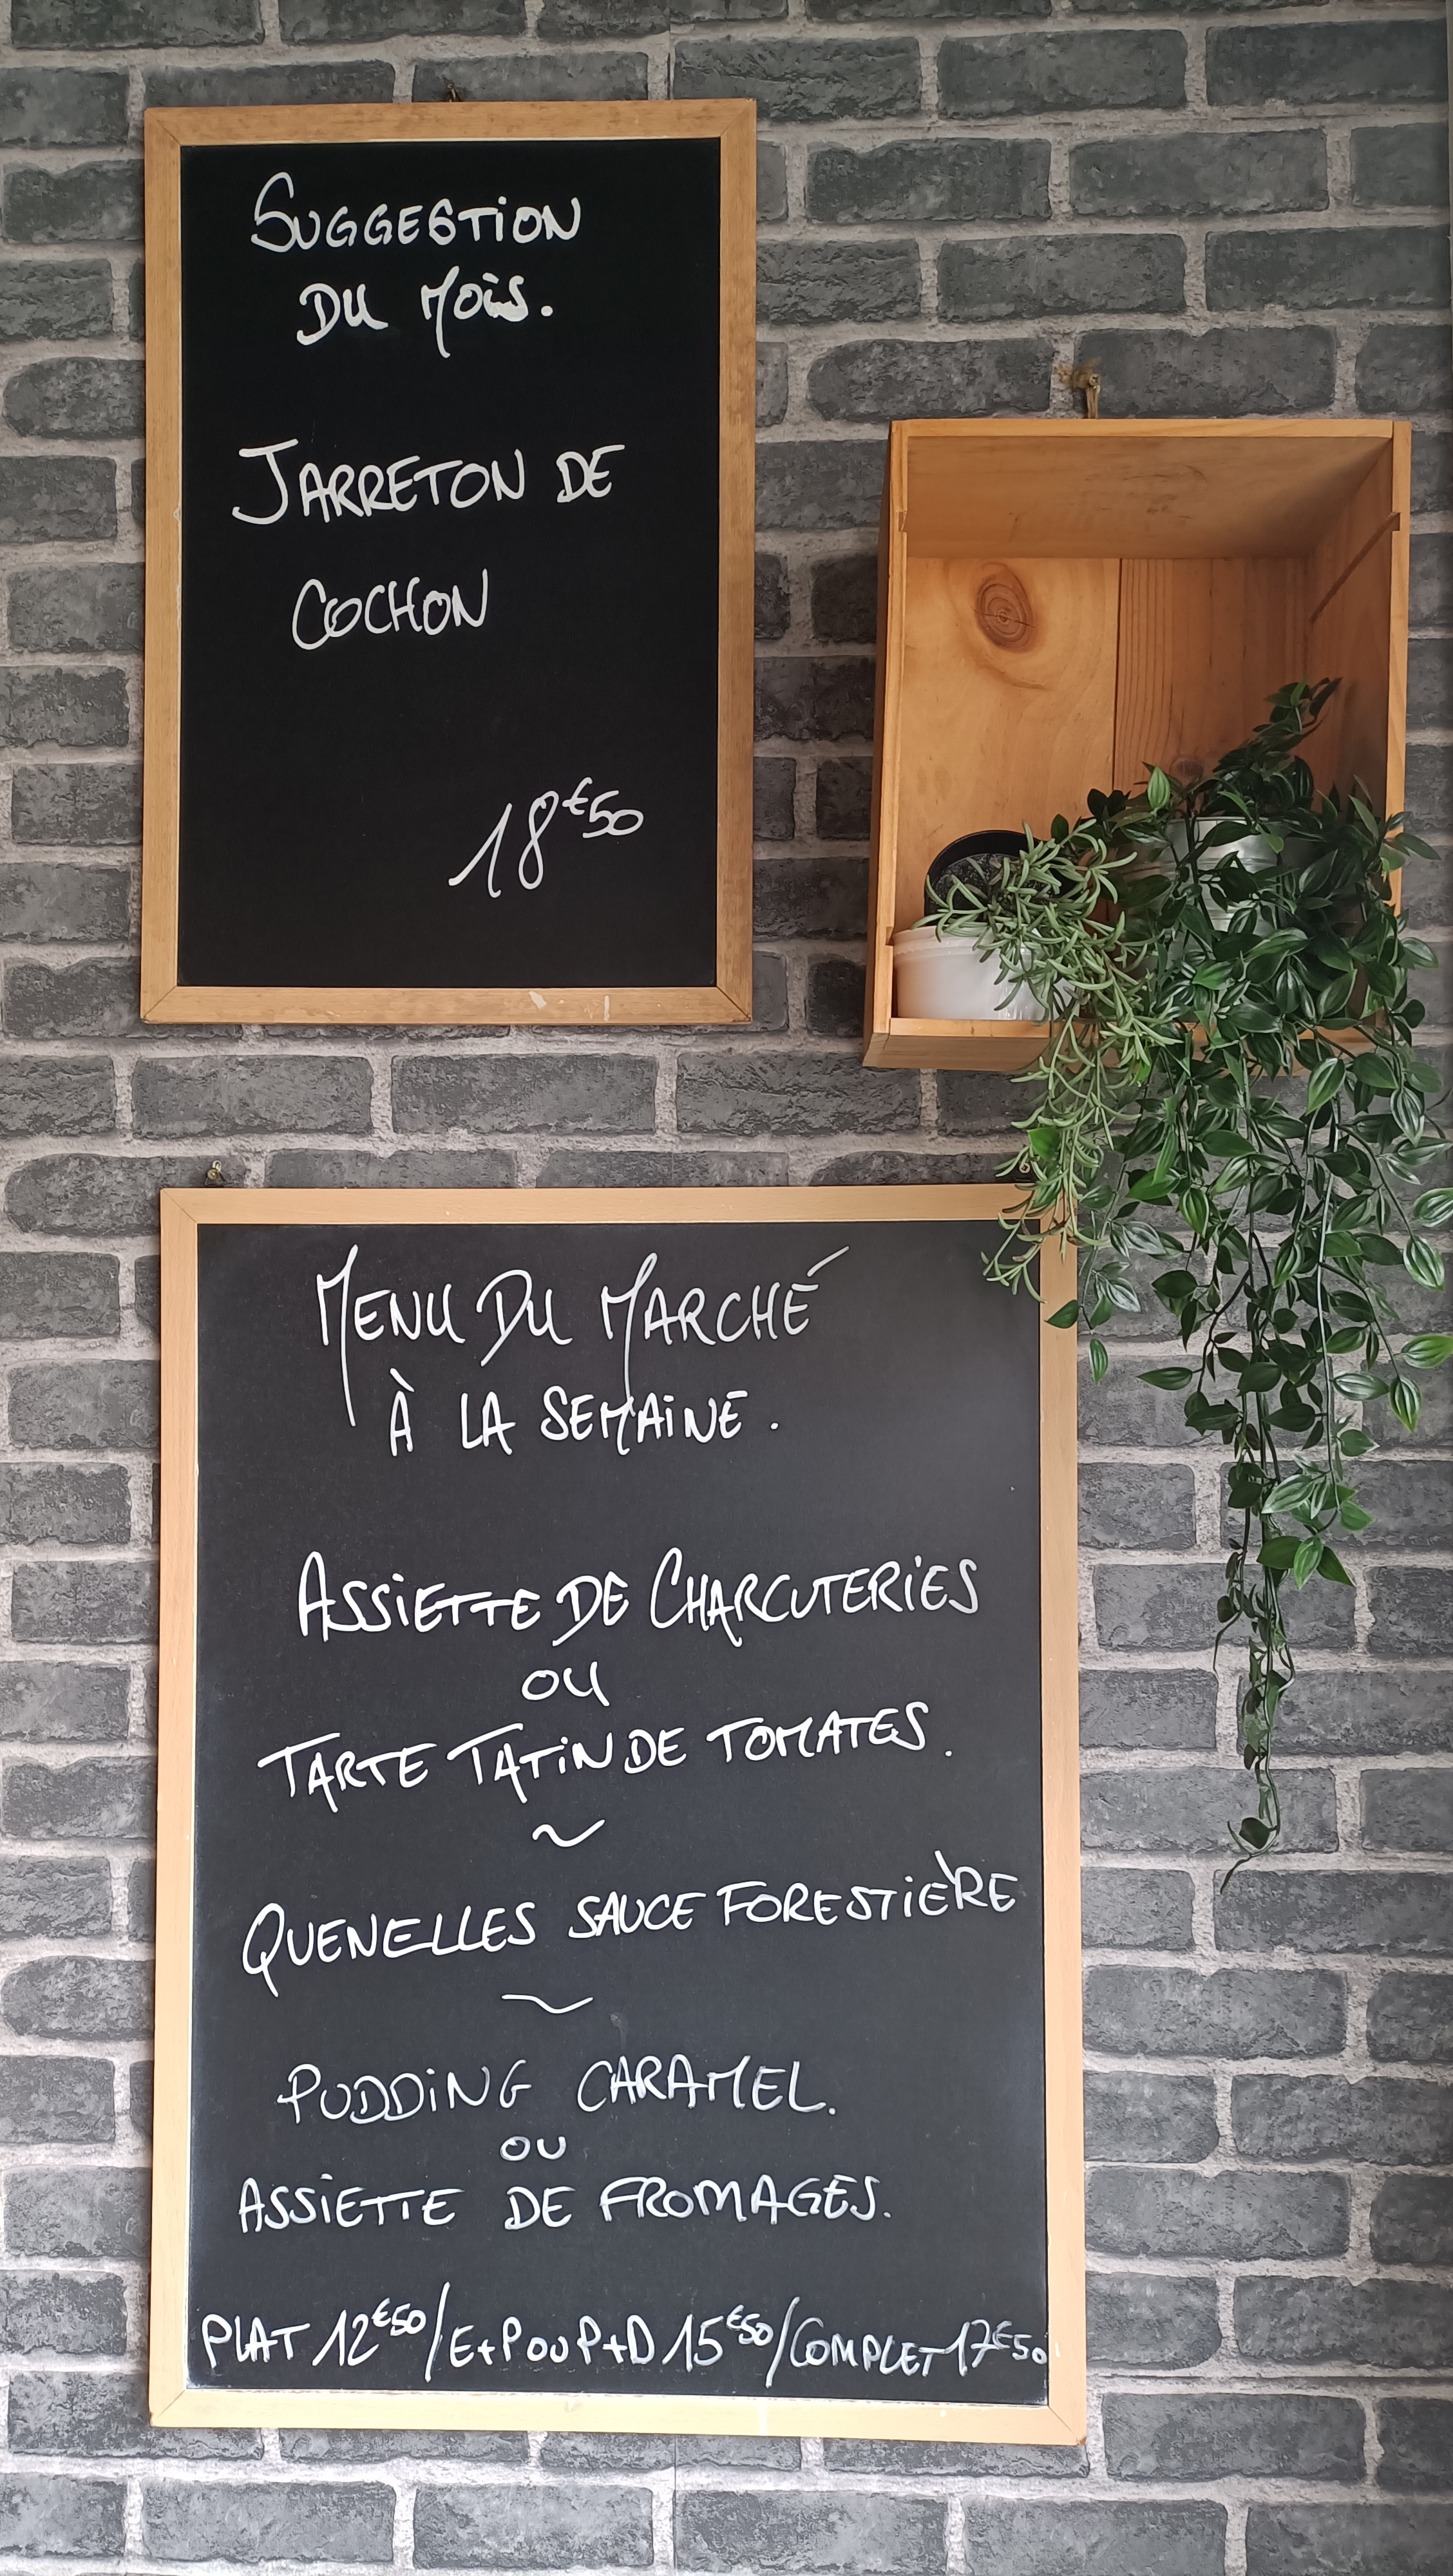 SUGGESTION
DU MOIS.
JARRETON DE
COCHON
18€50
MENU DU MARCHÉ
À LA SEMAINE.
ASSIETTE DE CHARCUTERIES
OU
TARTE TATIN DE TOMATES.
~
QUENELLES SAUCE FORESTIÈRE
~
PUDDING CARAMEL.
OU
ASSIETTE DE FROMAGES.
PLAT 12€50/E+P OU P+D 15€50/COMPLET 17€50